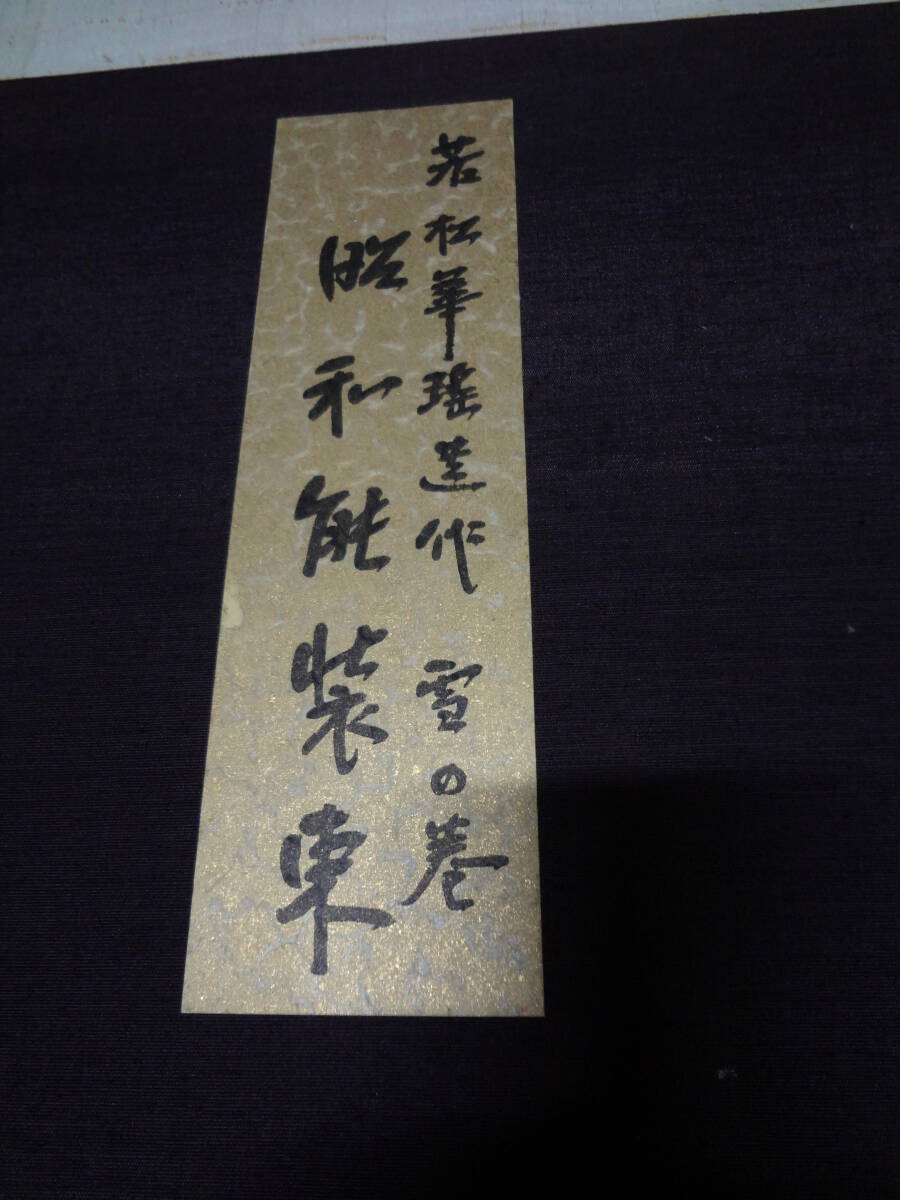 若松華瑤遺作 雪の巻
昭和能装束